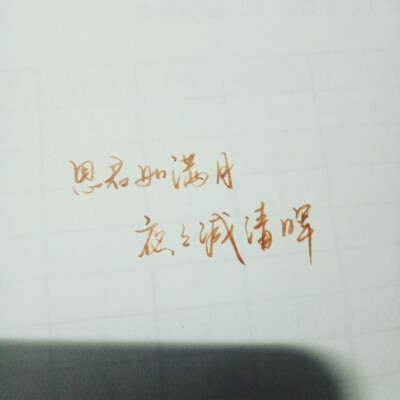 思君如满月
夜々减清晖